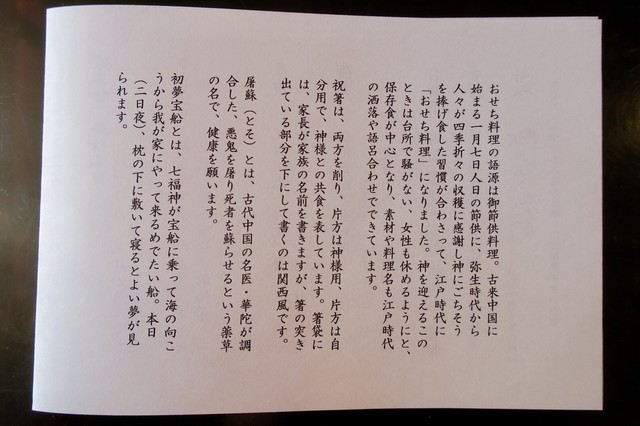 おせち料理の語源は御節供料理。古来中国に
始まる一月七日人日の節供に、弥生時代から
人々が四季折々の収穫に感謝し神にごちそう
を捧げ食した習慣が合わさって、江戸時代に
「おせち料理」になりました。神を迎えるこの
ときは台所で騒がない、女性も休めるようにと、
保存食が中心となり、素材や料理名も江戸時代
の洒落や語呂合わせでできています。
祝箸は、両方を削り、片方は神様用、片方は自
分用で、神様との共食を表しています。箸袋に
は、家長が家族の名前を書きますが、箸の突き
出ている部分を下にして書くのは関西風です。
屠蘇（とそ）とは、古代中国の名医・華陀が調
合した、悪鬼を屠り死者を蘇らせるという薬草
の名で、健康を願います。
初夢宝船とは、七福神が宝船に乗って海の向こ
うから我が家にやって来るめでたい船。本日
（二日夜）、枕の下に敷いて寝るとよい夢が見
られます。